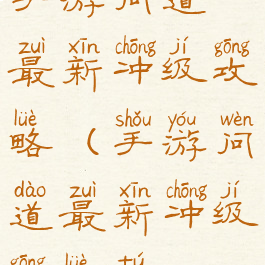 手游问道
zuì xīn chōng jí gōng
最新冲级攻
lüè shǒu yóu wèn
略(手游问
dào zuì xīn chōng jí
道最新冲级
gōng lüè tú